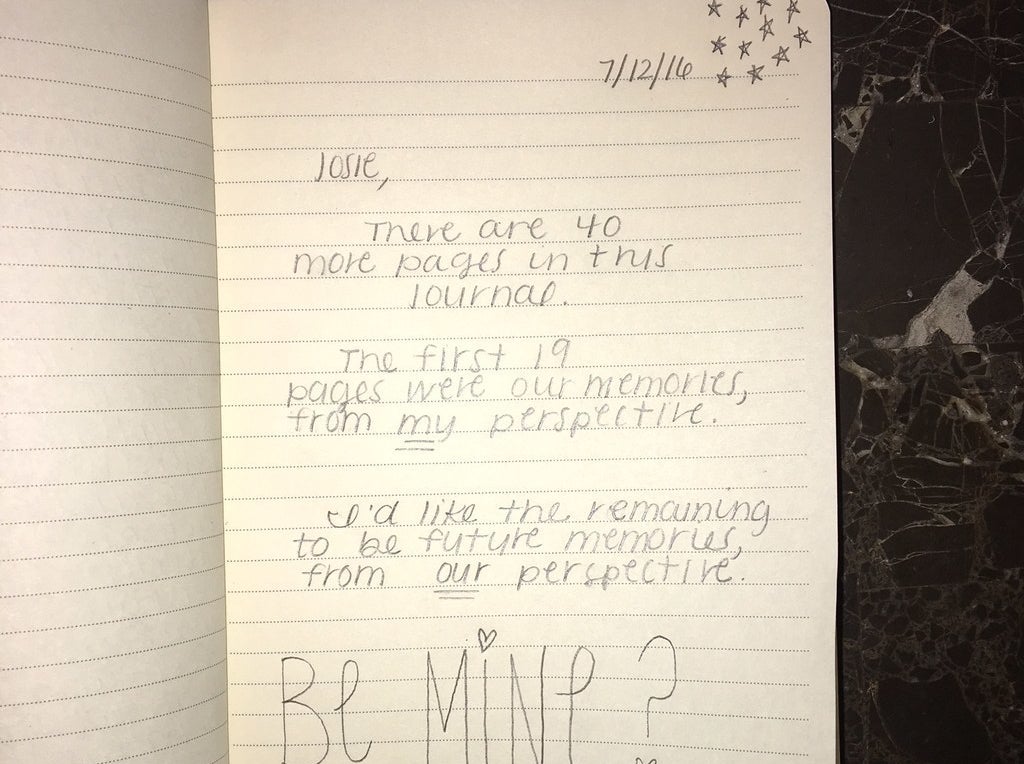 7/12/16
Josie,
There are 40
more pages in this
Journal.
The first 19
pages were our memories,
from my perspective.
I'd like the remaining
to be future memories,
from our perspective.
Be MiNe?